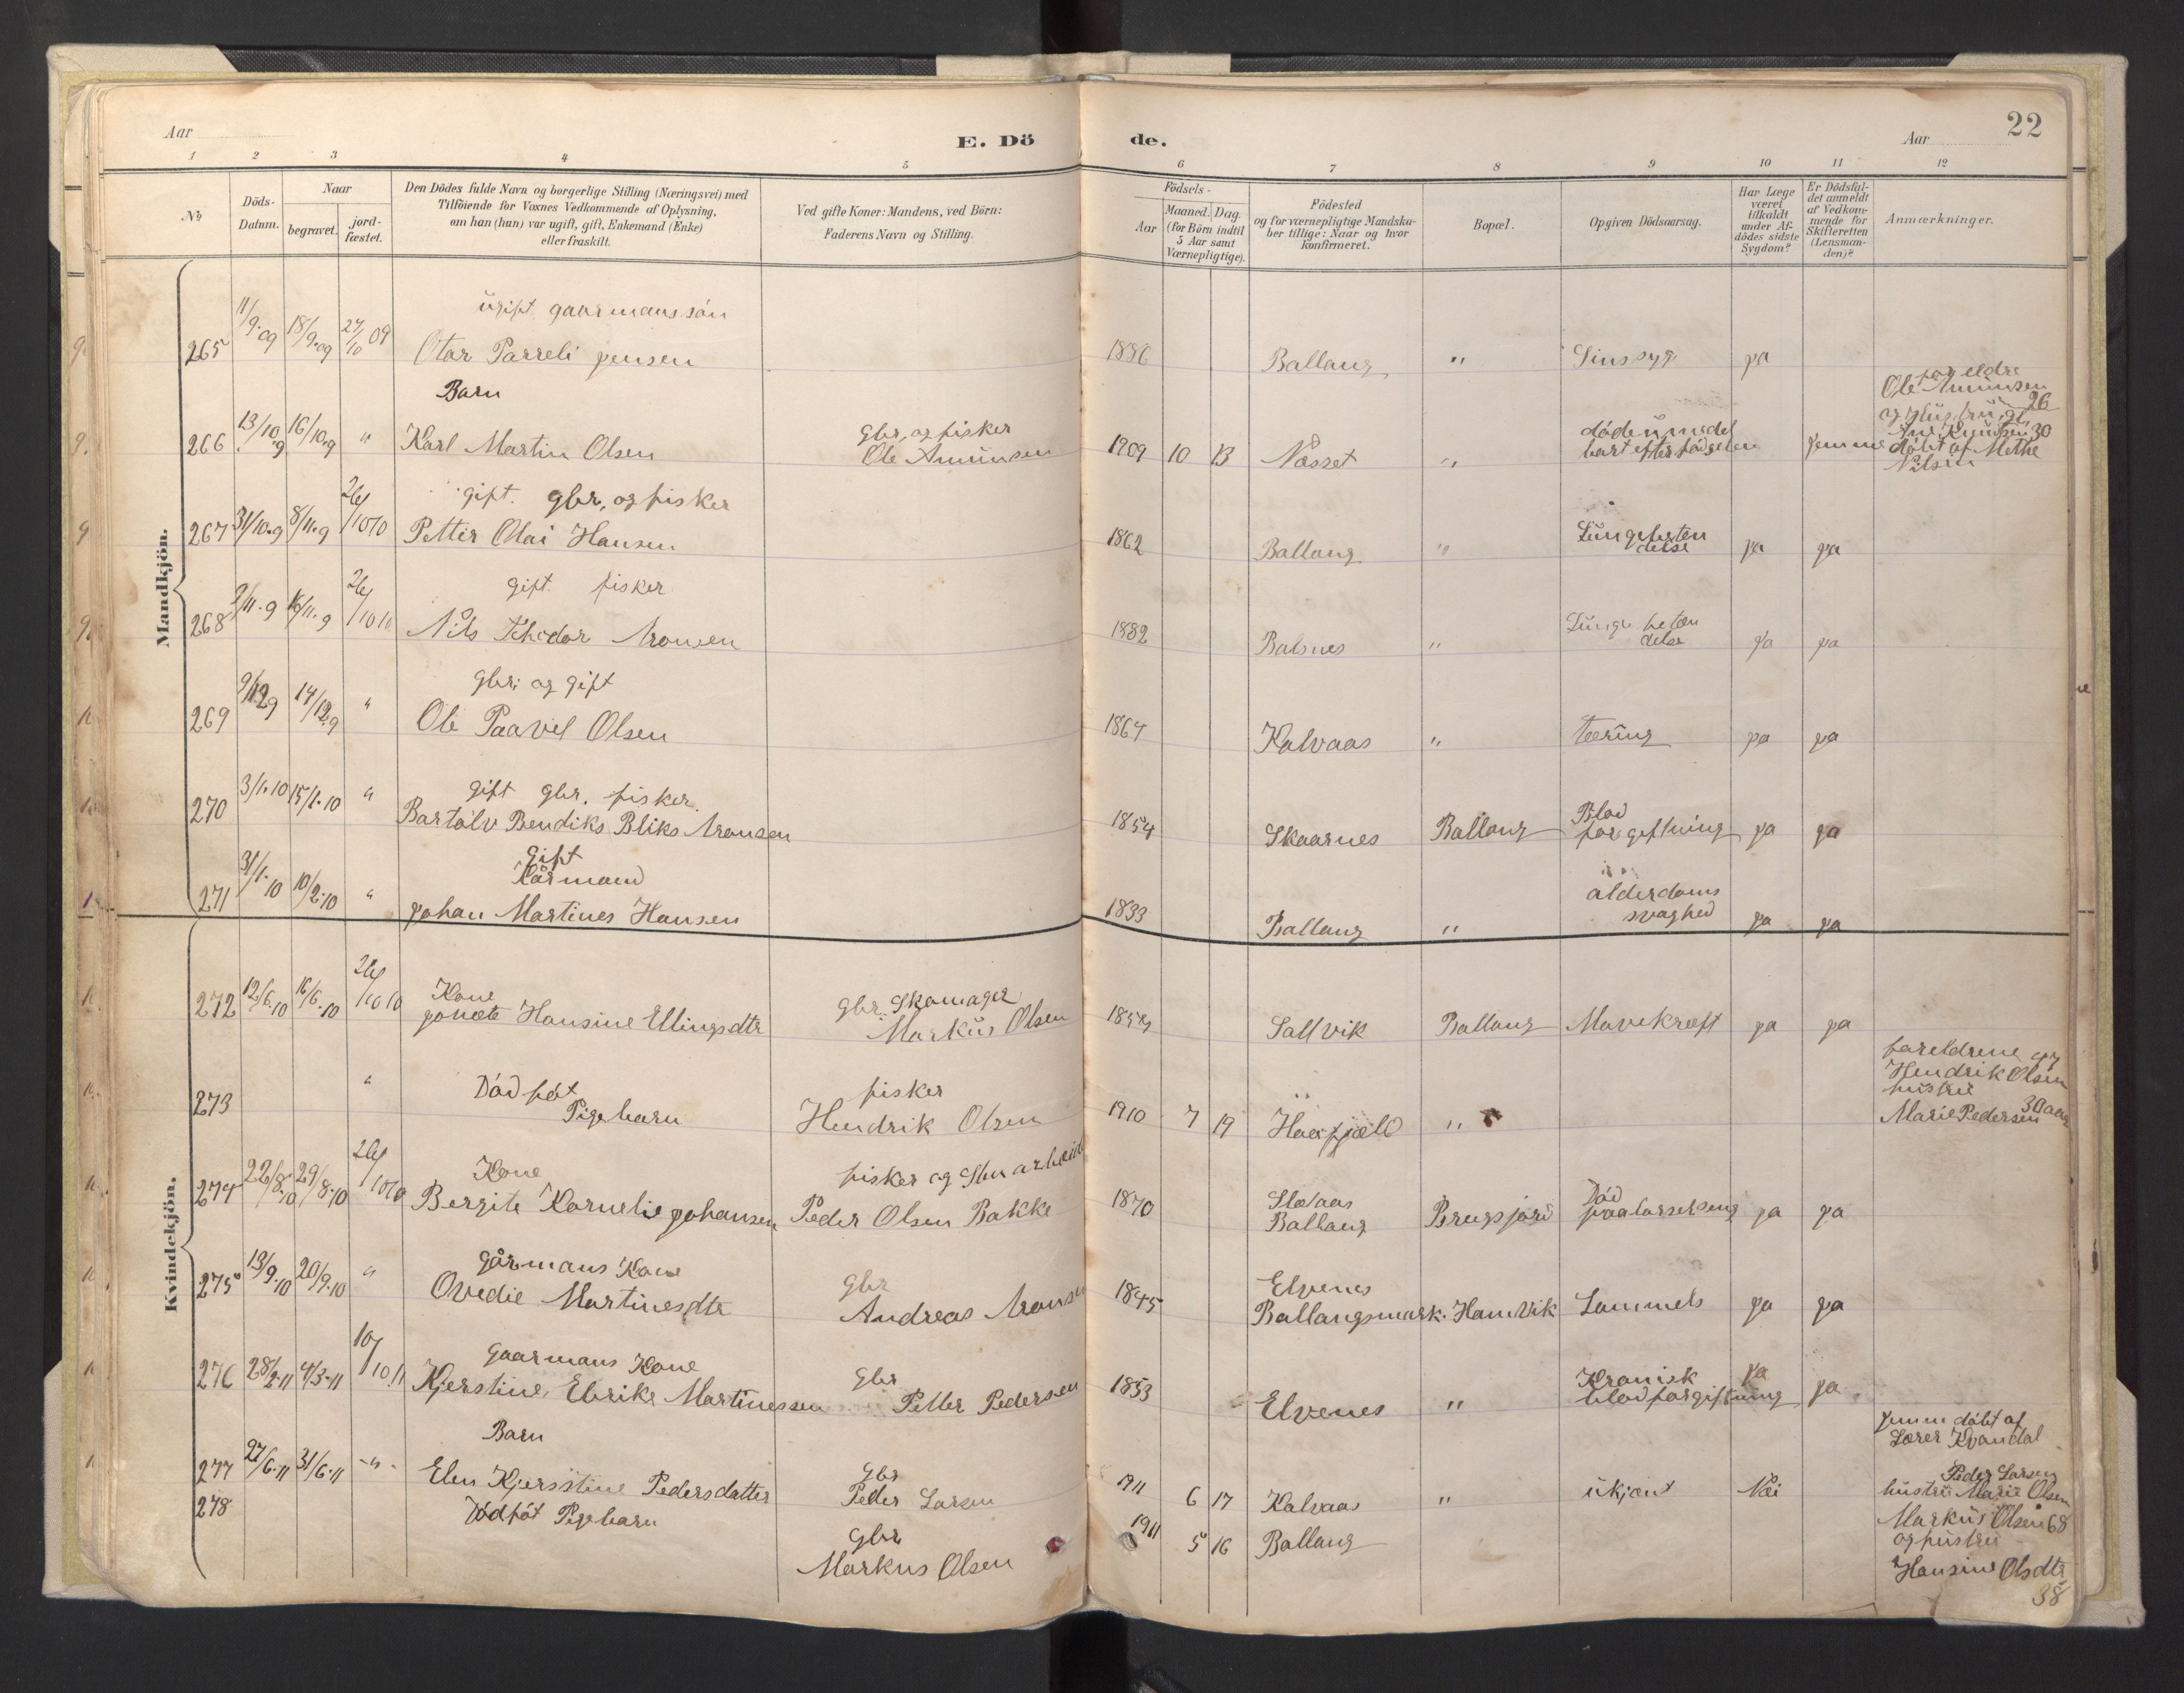 Aar
E. Dö
de.
Aar
22
1 2 3 4 5 6 7 8 9 10 11 12
No
Döds-
Datum.
Naar
begravet.
jord-
fæstet.
Den Dödes fulde Navn og borgerlige Stilling (Næringsvei) med
Tilföiende for Voxnes Vedkommende af Oplysning,
om han (hun) var ugift, gift, Enkemand (Enke)
eller fraskilt.
Ved gifte Koner: Mandens, ved Börn:
Faderens Navn og Stilling.
Födsels-
Aar
Maaned. Dag.
(for Börn indtil
5 Aar samt
Værnepligtige).
Födested
og for værnepligtige Mandska-
ber tillige: Naar og hvor
konfirmeret.
Bopæl.
Opgiven Dödsaarsag.
Har Læge
været
tilkaldt
under Af-
dödes sidste
Sygdom?
Er Dödsfal-
det anmeldt
af Vedkom-
mende for
Skifteretten
(Lensman-
den)?
Anmærkninger.
Mandkjön.
ugift gaarmanssón
265 11/9.09 18/9.09 27/10 09 Otar Parreli jensen 1886 Ballang " Sinssyg ja
Barn
266 13/10.9 16/10.9 " Karl Martin Olsen
Gbr. og fisker
Ole Amunsen
1909 10 13 Næsset "
dóde umedel
bart efter fódselen
jemme
foreldre
Ole Amunsen
26
og hustru
Knutsen 30
dóbt af Methe
Nilsen
gift. gbr, og fisker
267 31/10.9 8/11.9 26/10 10 Petter Olai Hansen 1862 Ballang "
Lungebeten
delse
ja ja
gift fisker
268 9/11.9 16/11.9 26/10 10 Nils Thedor Aronsen 1882 Balsnes "
Lunge beten
delse
ja ja
gbr; og gift
269 9/12.9 14/12.9 " Ole Paavel Olsen 1864 Kalvaas " teering ja ja
gift gbr. fisker.
270 3/1.10 15/1.10 " Bartólv Bendiks Bliks Aronsen 1854 Skaarnes Ballang
Blod
forgiftning
ja ja
Gift
Kårmand
271 31/1.10 10/2.10 " johan Martines Hansen 1833 Ballang "
alderdoms
svaghed
ja ja
Kvindekjön.
Kone
272 12/6.10 16/6.10 26/10 10 jonete Hansine Ellingsdtr
gbr Skomager
Markus Olsen
Sallvik Ballang Mavekræft ja ja
273 "
Dód fót
Pigebarn
fisker
Hendrik Olsen
1910 7 19 Haafjæld "
foreldrene 47
Hendrik Olsen
hustru
30 aar
Marie Pedersen
Kone
274 22/8.10 29/8.10 26/10 10 Bergite Kornelie johansen
fisker og Stenarbeid
Peder Olsen Bakke
1870
Ballang
Bergsfjord
Dód
paa barselseng
ja ja
gårmans Kone
275 13/9.10 20/9.10 " Ovedie Martinesdtr
Gbr
Andreas Aronsen
1845
Elvenes
Ballangsmark. Hamvik Lammels ja ja
gaarmans Kone
276 28/2.11 4/3.11 10/10 11 Kjerstine, Elrike Martinessen
Gbr
Petter Pedersen
1853 Elvenes "
Kronisk
blodforgiftning
ja ja
Barn
277 27/6.11 31/6.11 -"- Elen Kjersstine Pedersdatter
Gbr
Peder Larsen
1911 6 17 Kalvaas " ukjent Nei
jemm dóbt af
Lærer Kvandal
Peder Larsen
hustru Marie Olsen
278 Dódfót Pigebarn
Gbr
Markus Olsen
1911 5 16 Ballang
Markus Olsen 68
og hustru
Hansine Olsdtr
38